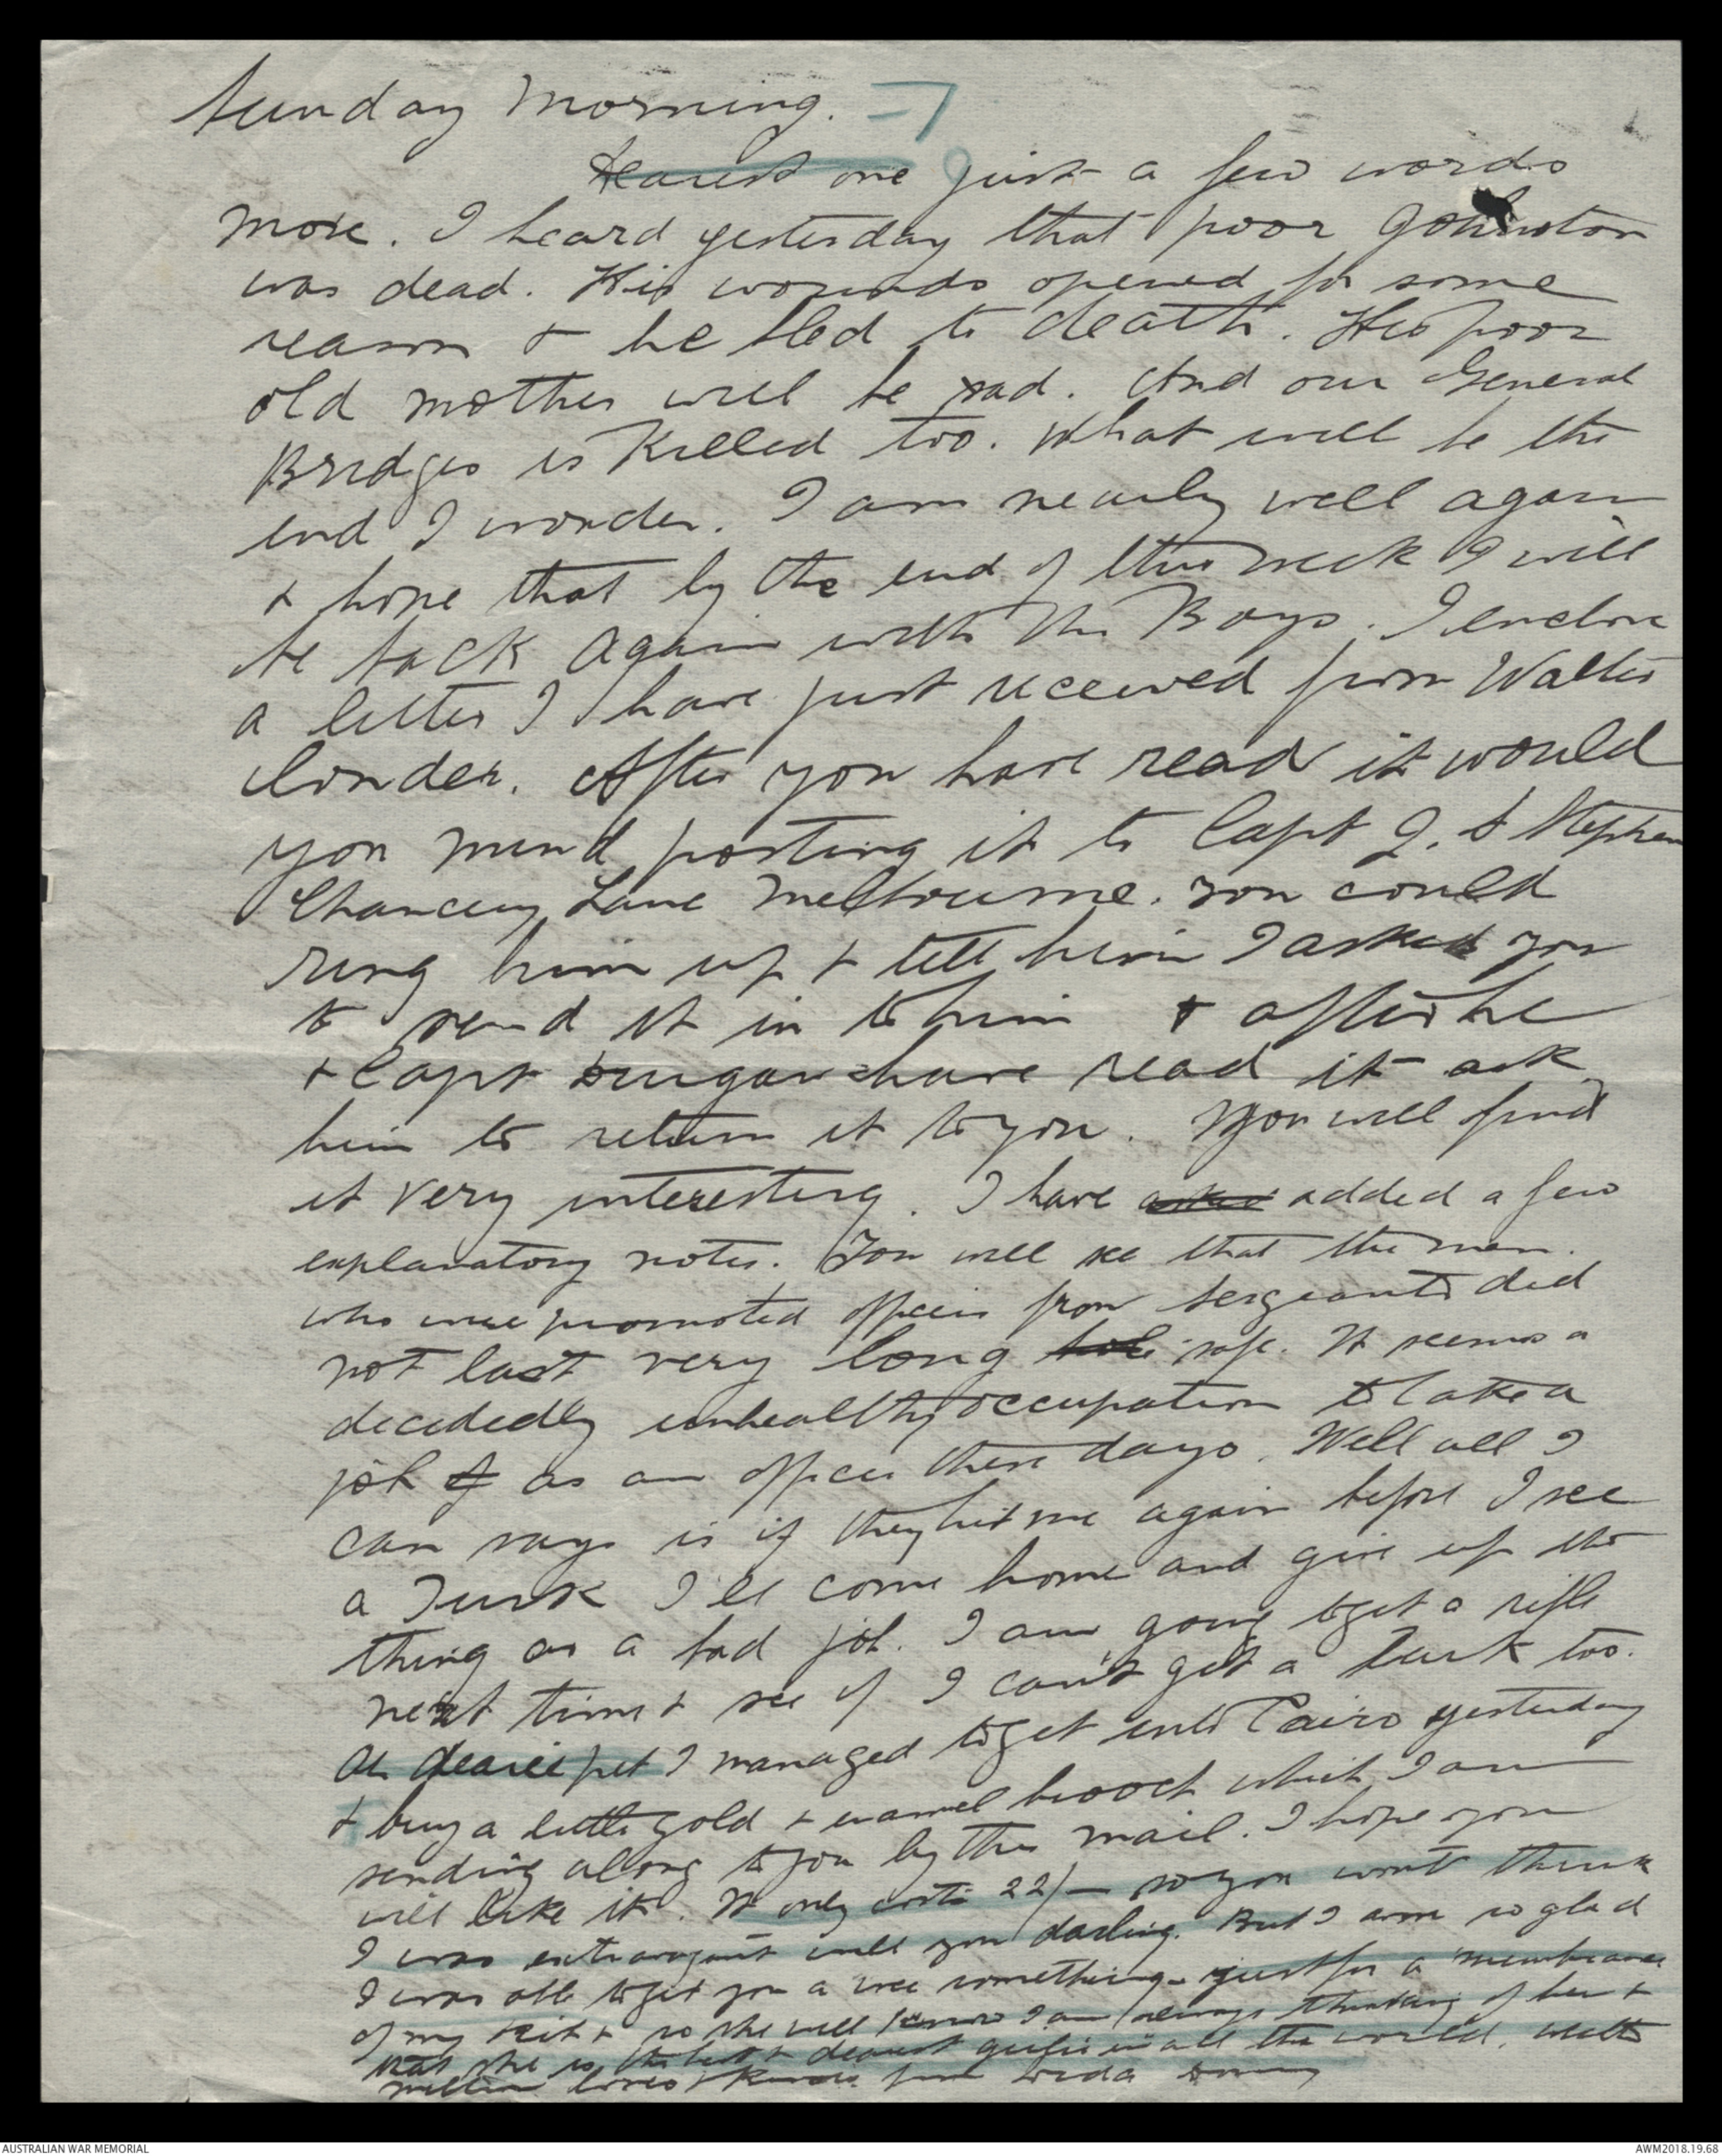 Sunday Morning.
Dearest one just a few words
more. I heard yesterday that poor Johnston
was dead. His wounds opened for some
reason & he bled to death. His poor
old mother will be sad. And our General
Bridges is killed too. What will be the
end I wonder. I am nearly well again
& hope that by the end of this week I will
be back again with the Boys. I enclose
a letter I have just received from Walter
Conder. After you have read it would
you mind posting it to Capt J. S Stephen
Chancery Lane Melbourne. You could
ring him up & tell him I asked you
to send it in to him & after he
& Capt have read it ask
him to return it to you. You will find
it very interesting. I have added a few
explanatory notes. You will see that the men
who were promoted officers from sergeants did
not last very long safe. It seems a
decidedly unhealthy occupation to take a
job as an officer these days. Well all I
can say is if they hit me again before I see
a Turk I'll come home and give up the
thing as a bad job. I am going to get a rifle
next time & see if I can't get a Turk too.
Oh dearie pet I managed to get into Cairo yesterday
& buy a little gold & enamel brooch which I am
sending along to you by this mail. I hope you
will like it. It only costs 22/- so you wont think
I was extravagant will you darling. But I am so glad
I was able to get you a wee something - just for a 'membrance
of my & so she will know I am always thinking of her &
that she is the best & dearest girlie in all the world. With
million loves & from
AUSTRALIAN WAR MEMORIAL
AWM2018.19.68